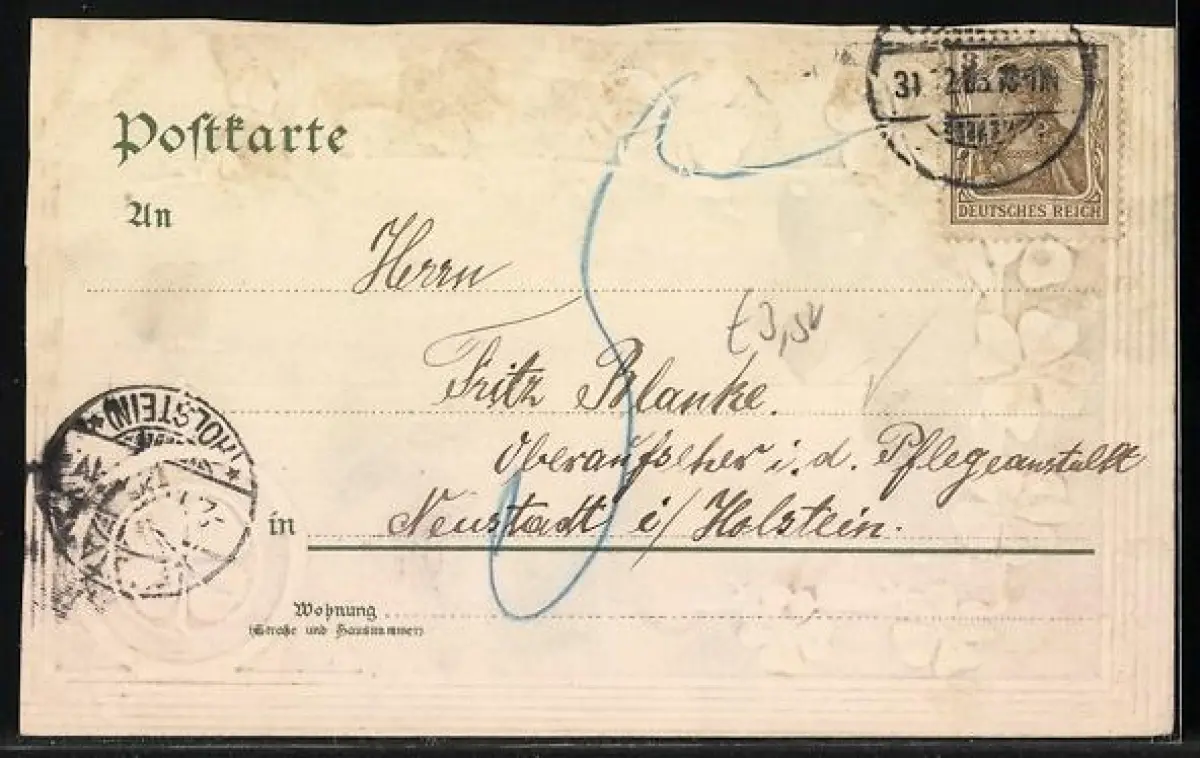 Postkarte
31 12 05 10-11N
3
DEUTSCHES REICH
An
Herrn
5
€3,50
Fritz Blanke.
Oberaufseher i. d. Pflegeanstalt
* (HOLSTEIN) *
in Neustadt i/ Holstein.
Wohnung
(Straße und Hausnummer)